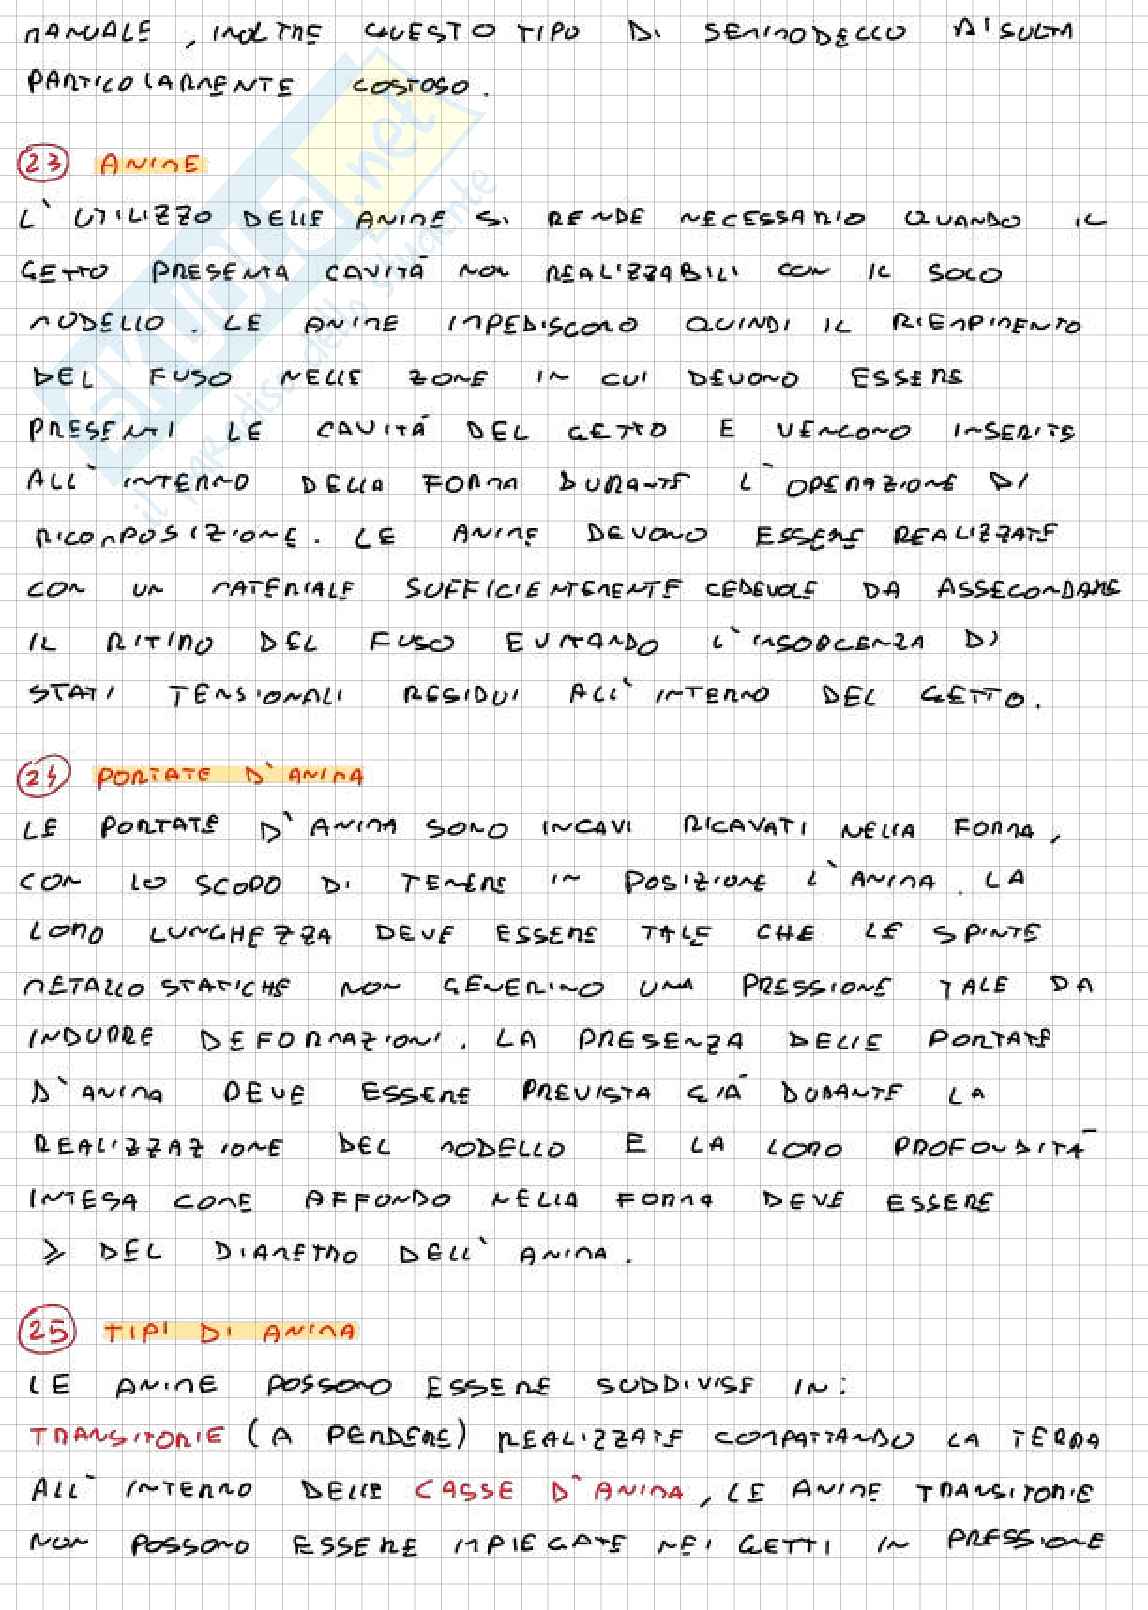 MANUALE, INOLTRE QUESTO TIPO DI SEMIMODELLO RISULTA
PARTICOLARMENTE COSTOSO.
23 ANIME
L'UTILIZZO DELLE ANIME SI RENDE NECESSARIO QUANDO IL
GETTO PRESENTA CAVITÀ NON REALIZZABILI CON IL SOLO
MODELLO. LE ANIME IMPEDISCONO QUINDI IL RIEMPIMENTO
DEL FUSO NELLE ZONE IN CUI DEVONO ESSERE
PRESENTI LE CAVITÀ DEL GETTO E VENGONO INSERITE
ALL'INTERNO DELLA FORMA DURANTE L'OPERAZIONE DI
RICOMPOSIZIONE. LE ANIME DEVONO ESSERE REALIZZATE
CON UN MATERIALE SUFFICIENTEMENTE CEDEVOLE DA ASSECONDARE
IL RITIRO DEL FUSO EVITANDO L'INSORGENZA DI
STATI TENSIONALI RESIDUI ALL'INTERNO DEL GETTO.
24 PORTATE D'ANIMA
LE PORTATE D'ANIMA SONO INCAVI RICAVATI NELLA FORMA,
CON LO SCOPO DI TENERE IN POSIZIONE L'ANIMA. LA
LORO LUNGHEZZA DEVE ESSERE TALE CHE LE SPINTE
METALLOSTATICHE NON GENERINO UNA PRESSIONE TALE DA
INDURRE DEFORMAZIONI. LA PRESENZA DELLE PORTATE
D'ANIMA DEVE ESSERE PREVISTA GIÀ DURANTE LA
REALIZZAZIONE DEL MODELLO E LA LORO PROFONDITÀ
INTESA COME AFFONDO NELLA FORMA DEVE ESSERE
≥ DEL DIAMETRO DELL'ANIMA.
25 TIPI DI ANIMA
LE ANIME POSSONO ESSERE SUDDIVISE IN:
TRANSITORIE (A PERDERE) REALIZZATE COMPATTANDO LA TERRA
ALL'INTERNO DELLE CASSE D'ANIMA, LE ANIME TRANSITORIE
NON POSSONO ESSERE IMPIEGATE NEI GETTI IN PRESSIONE
skuola.net
il paradiso dello studente